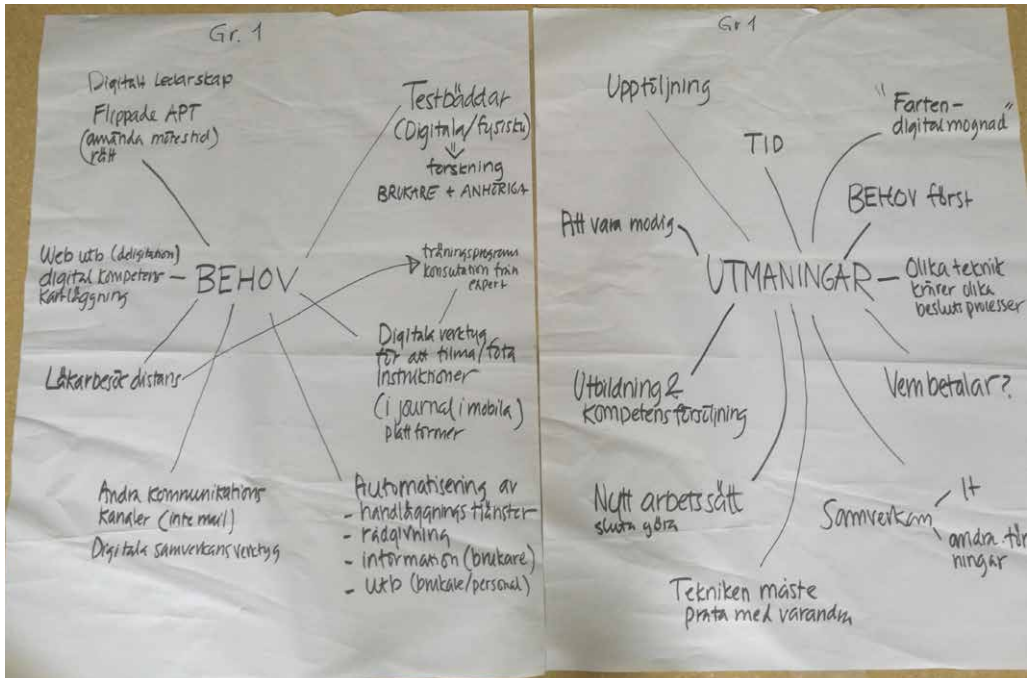 Gr. 1
Digitalt Ledarskap
Flippade APT
(använda mötestid)
rätt
Testbäddar
(Digitala/fysiska)
forskning
BRUKARE + ANHÖRIGA
Web utb (deligitation)
digital kompetens
kartläggning
BEHOV
träningsprogram
konsultation från
expert
Läkarbesök distans
Digitala verktyg
för att filma/fota
Instruktioner
(i journal i mobila)
plattformer
Andra kommunikations
kanaler (inte mail)
Digitala samverkansverktyg
Automatisering av
- handläggnings tjänster
- rådgivning
- information (brukare)
- utb (brukare/personal)
Gr 1
Uppföljning
TID
"Farten-
digitalmognad"
BEHOV först
Att vara modig
UTMANINGAR
Olika teknik
kräver olika
besluts processer
Utbildning &
kompetensförsöljning
Vem betalar?
Nytt arbetssätt
sluta göra
Samverkan
It
andra för
ningar
Tekniken måste
prata med varandra